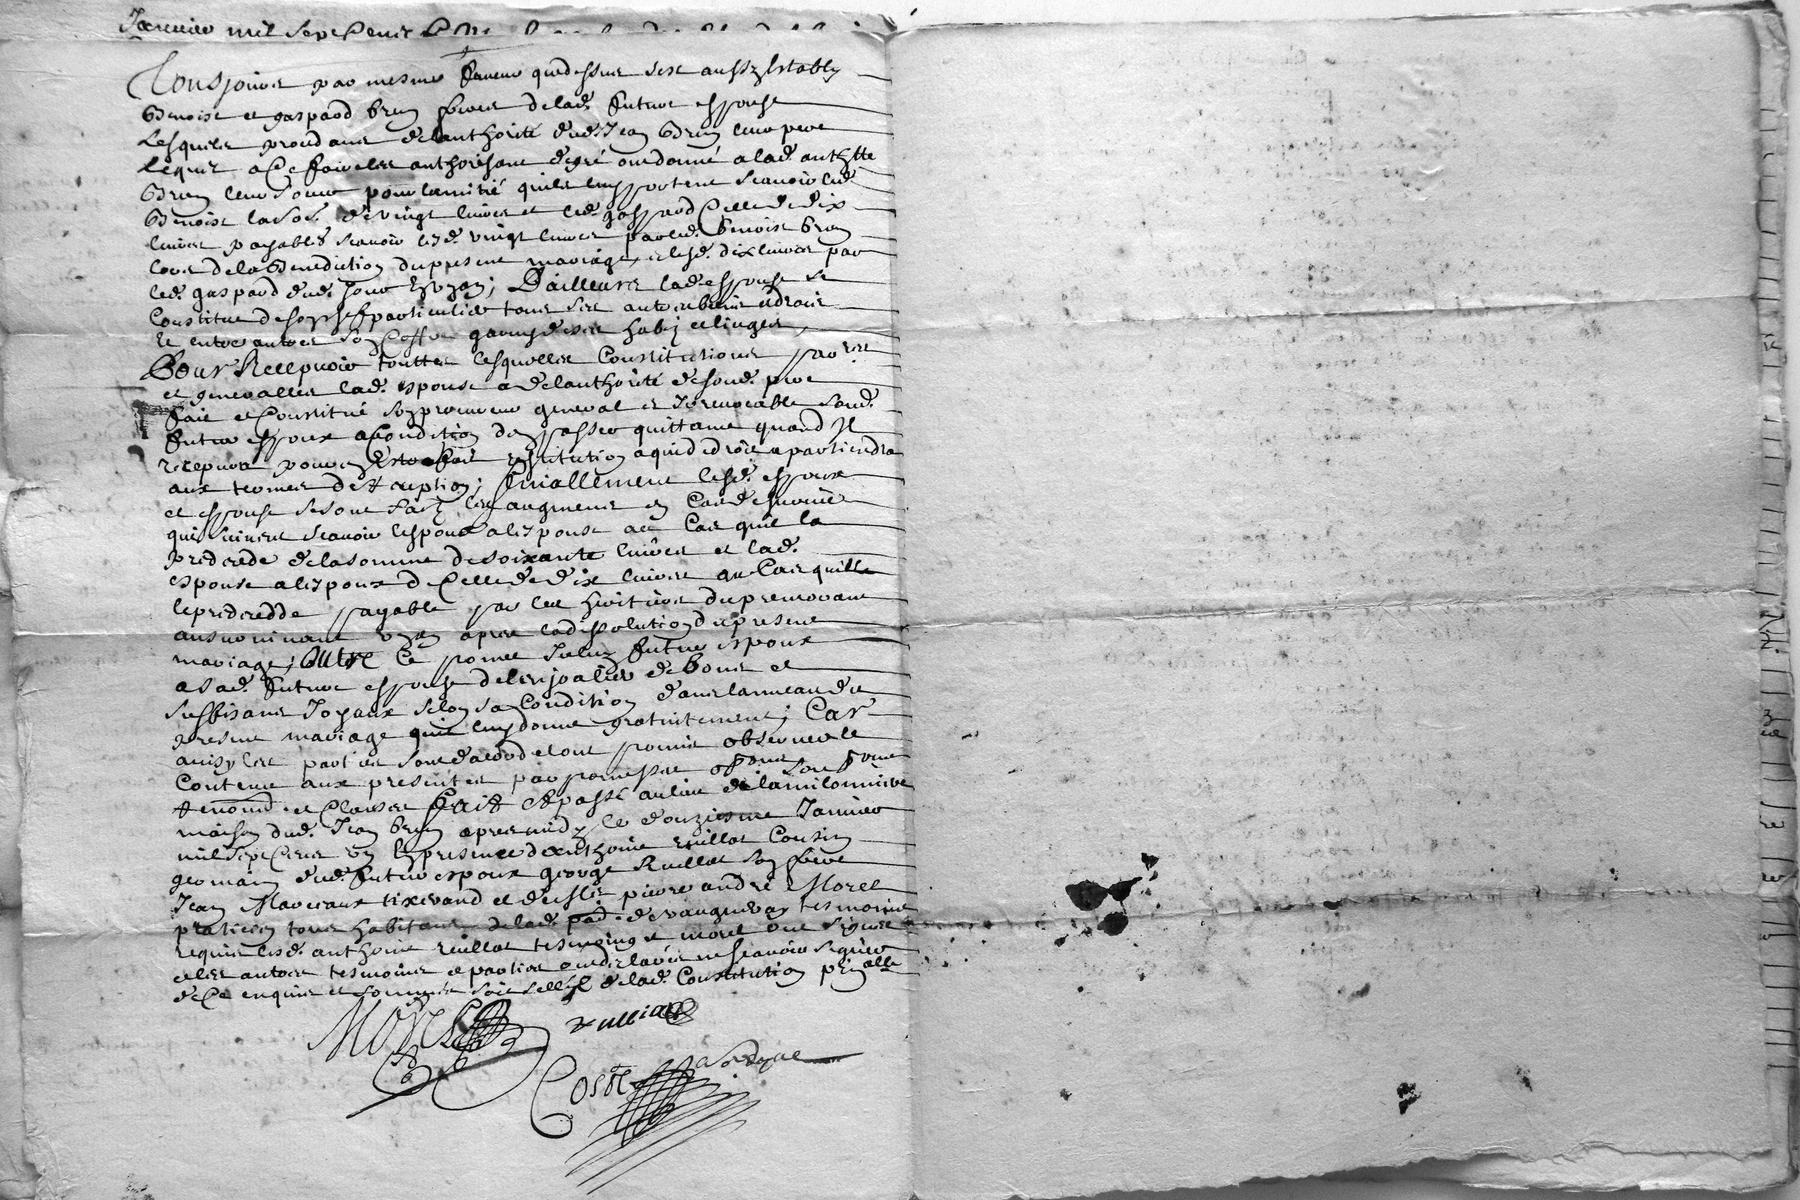 Janvier mil sept Cens
Tousjours par mesme faveur que dessus sest aussy establly
Benoist et gaspard brun freres de lad. future espouse
Lesquels procedans de lauthorité dud. Jean Brun leur pere
lequel a Ce faire les authorisant de gré ont donné a lad. anth.tte
Brun leur soeur pour lamitié quils luy portent scavoir led.
Benoist la so.e de vingt livres et led. gaspard Celle de dix
livres payables scavoir lesd. vingt livres par led. benoist brun
lors de la Benediction du present mariage et lesd. dix livres par
led. gaspard dud. jour en un an; D'ailleurs lad. espouse se
Constitue de son chef particulier tous ses autres biens et droits
et entre autres son Coffre garny de ses habis et linges
Pour Recepvoir touttes lesquelles Constitutions par.res
et generalles lad. espouse a de lauthorité de sond. pere
fait et Constitué son procureur general et Irrevocable sond.
futur espoux a Condition den passer quittance quand Il
recepvra pour en estre fait restitution a qui de droit apartiendra
aux termes de exaption; finallement lesd. espoux
et espouse se sont faits les augments en Cas de survie
qui suivent scavoir lespoux a lespouse au Cas quil la
predecede de la somme de soixante livres et lad.
espouse a lespoux de Celle de dix livres au Cas quelle
le predecedde payable par les heritiers du premourant
au survivant un an apres la dissolution du present
mariage; Outre Ce promet Iceluy futur espoux
a sad. future espouse de lenjoalier de bons et
suffisans Joyaux selon sa Condition dans lannéan du
present mariage quil luy donne gratuitement; Car
ainsy les parties sont daccord et ont promis observer le
Contenu aux presentes par promesse
renond. et Clauses fait et passé au lieu de
maison dud. Jean brun apres midy le douziesme Janvier
mil sept Cens un En presence danthoine rullat Cousin
germain dud. futur espoux george Rullat son frere
Jean Marceaux tixerand et de Mr pierre andré Morel
praticien tous habitans de lad. par. de vaugneray tesmoins
requis lesd. anthoine rullat tesmoins et morel ont signé
et les autres tesmoins et parties ont declaré ne scavoir signer
de Ce enquis et sommés soit sellé de lad. Constitution p.alle
Morel
Rulliat
Coste